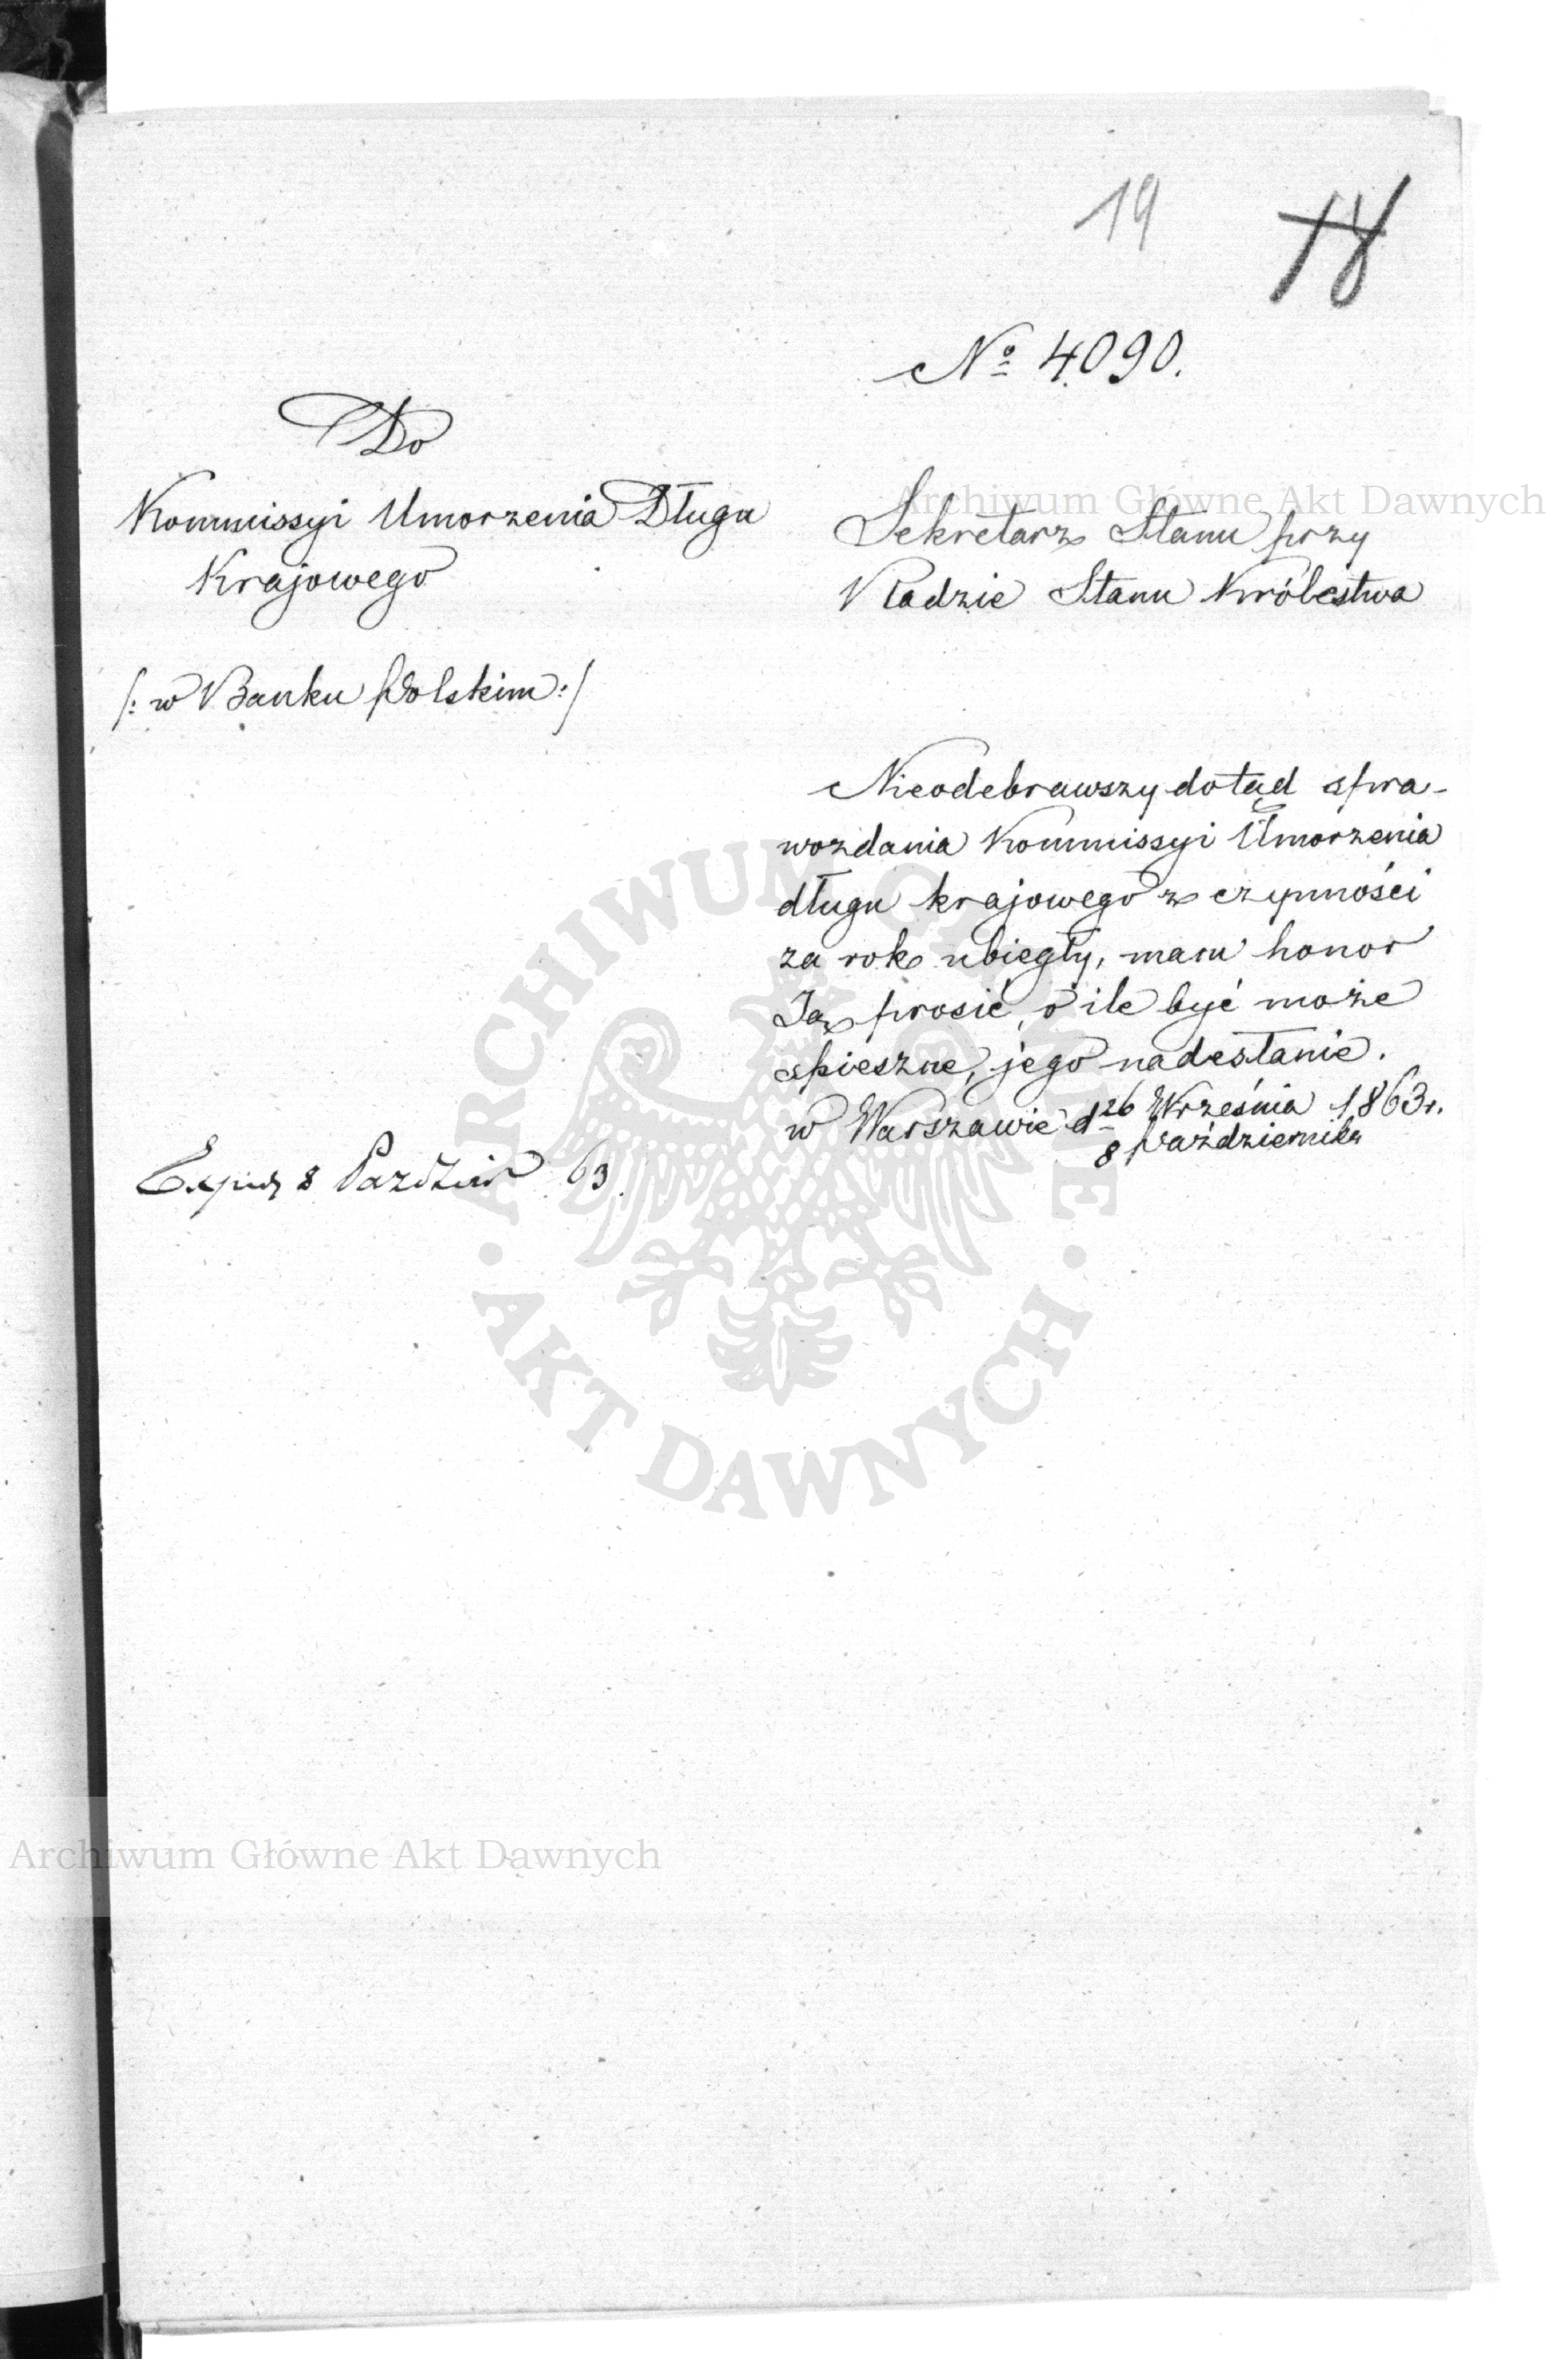 19 18
№ 4090.
Do
Kommissyi Umorzenia Długu
Krajowego
/: w Banku Polskim :/
Sekretarz Stanu przy
Radzie Stanu Królestwa
Nieodebrawszy dotąd spra-
wozdania Kommissyi Umorzenia
długu krajowego z czynności
za rok ubiegły, mam honor
Ją prosić, o ile być może
śpieszne, jego nadesłanie.
w Warszawie d 26 Września 1863 r.
8 Października
8 Paździer 63.
Archiwum Główne Akt Dawnych
ARCHIWUM GŁÓWNE
· AKT DAWNYCH ·
Archiwum Główne Akt Dawnych